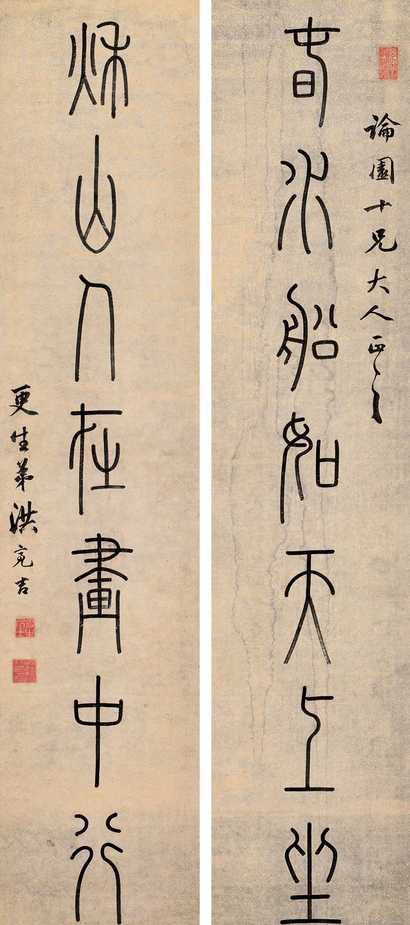 論園十兄大人正之
春水船如天上坐
秌山人在畫中行
更生弟洪亮吉